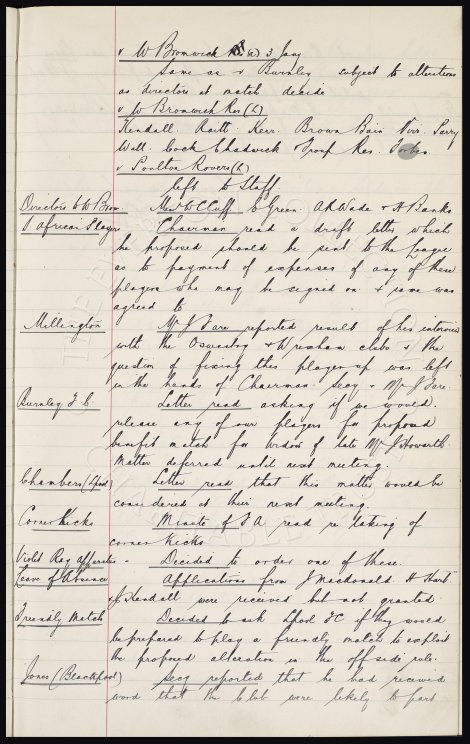 v W Bromwich (a) 3 Jany
Same as v Burnley subject to alterations
as directors at match decide
v W Bromwich Res (L)
Kendall. Raitt. Kerr. Brown Bain Virr. Parry
Wall. Cock Chadwick & Troup Res.
v Poulton Rovers (h)
left to Staff
Directors to W Brom. Mess W C Cuff B Green. A R Wade & H Banks
S African Players Chairman read a draft letter which
he proposed should be sent to the League
as to payment of expenses of any of these
players who may be signed on & same was
agreed to
Millington Mr J Fare reported result of his interviews
with the Oswestry & Wrexham clubs & the
question of fixing this player up was left
in the hands of Chairman Secy & Mr J Fare.
Burnley F.C. Letter read asking if we would
release any of our players for proposed
benefit match for widow of late Mr J Howarth.
Matter deferred until next meeting.
Chambers (Lpool) Letter read that this matter would be
considered at their next meeting.
Corner Kicks Minute of F A read re taking of
corner kicks
Violet Ray Apparatus - Decided to order one of these.
Leave of Absence Applications from J Macdonald. H Hart
& J Kendall were received but not granted.
Friendly Match Decided to ask Lpool FC if they would
be prepared to play a friendly match to exploit
the proposed alteration in the off side rule.
Jones (Blackpool) Secy reported that he had received
word that the Club were likely to part